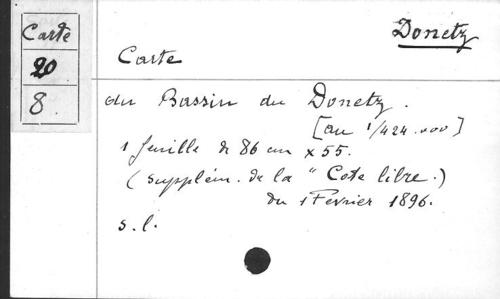 Carte
20
8.
Donetz
Carte
du Bassin du Donetz.
[au 1/424.000]
1 feuille de 86 cm x 55.
(supplém. de la "Cote libre.)
du 1 Fevrier 1896.
s.l.